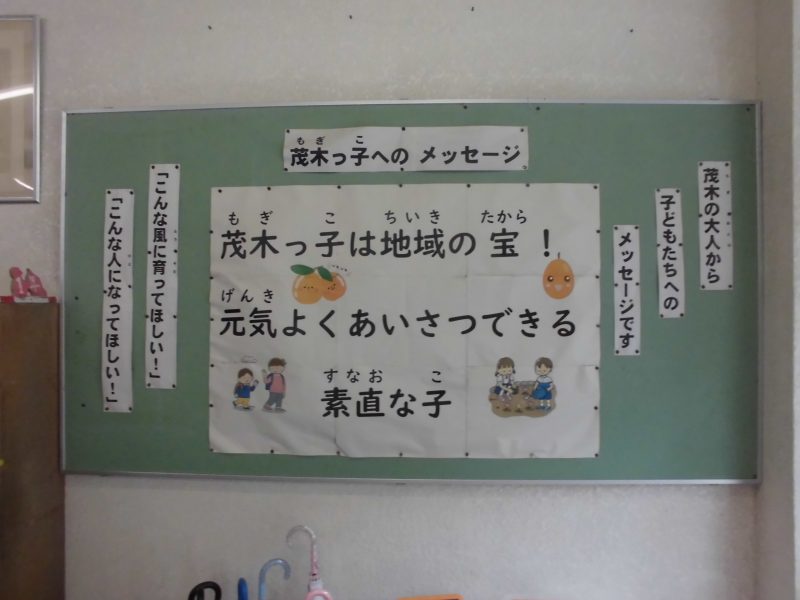 茂木っ子への メッセージ
茂木の大人から
子どもたちへの
メッセージです
もぎ こ ちいき たから
茂木っ子は地域の宝！
げんき
元気よくあいさつできる
すなお こ
素直な子
「こんな風に育ってほしい！」
「こんな人になってほしい！」